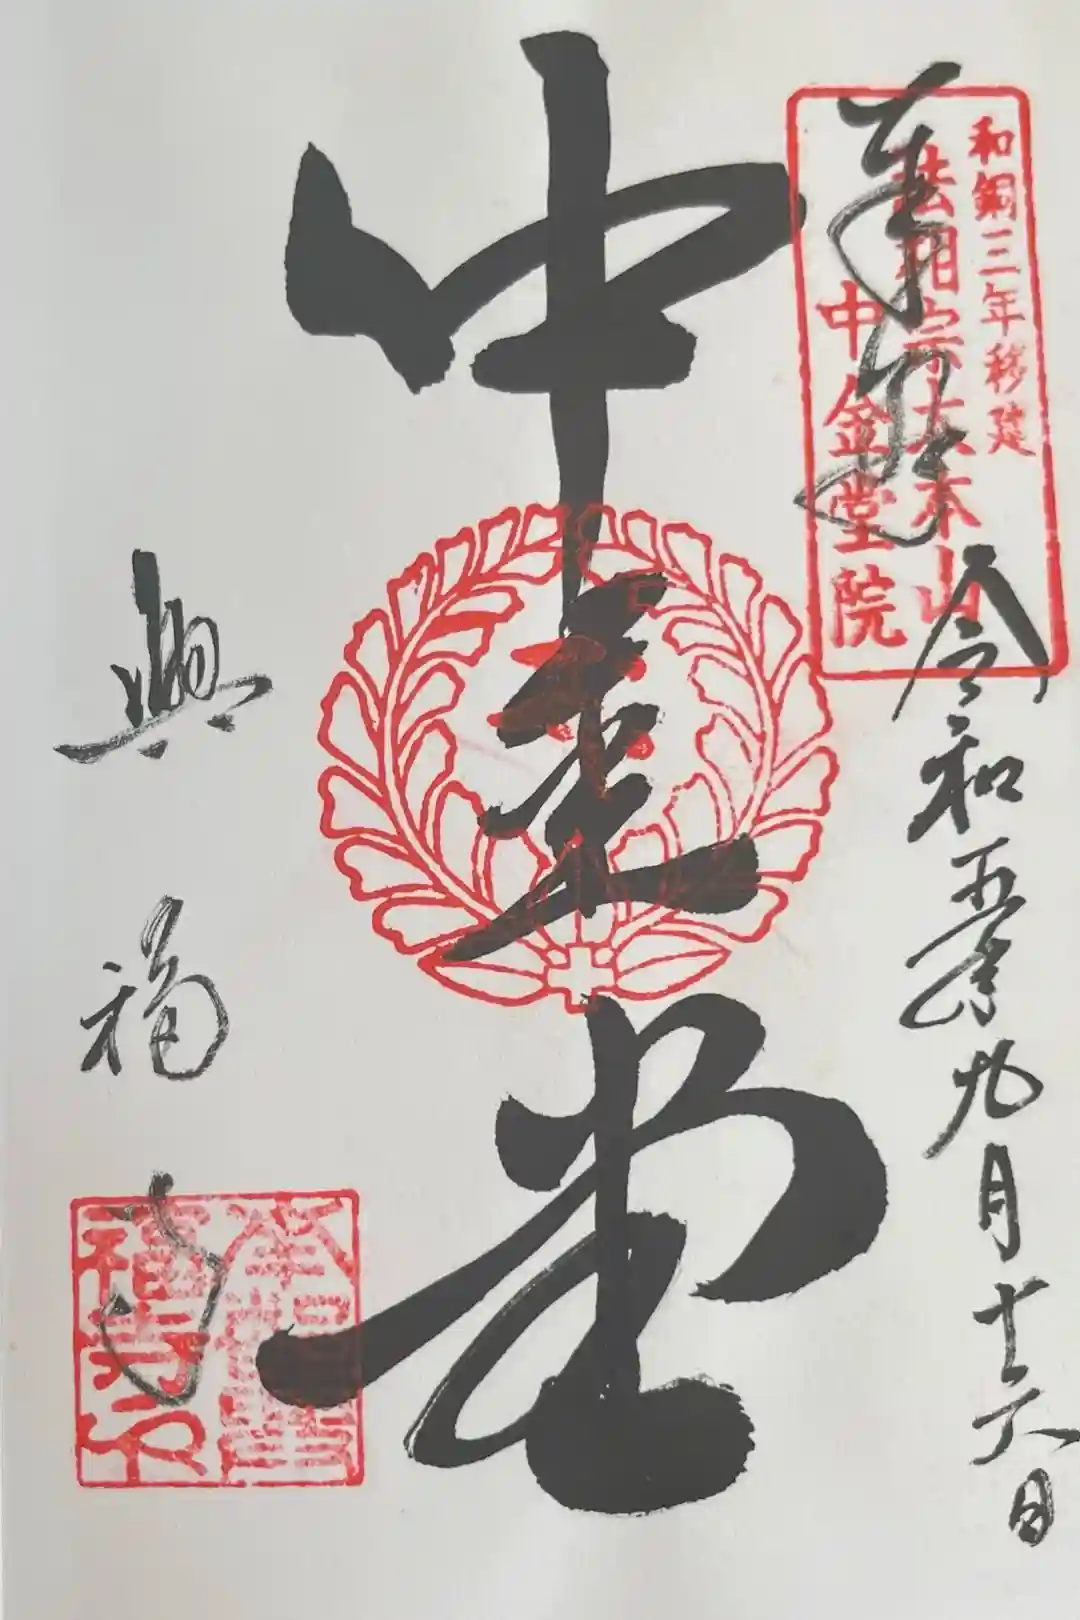 奉拝
令和五年九月十六日
和銅三年移建
法相宗大本山
中金堂院
中金堂
興福寺